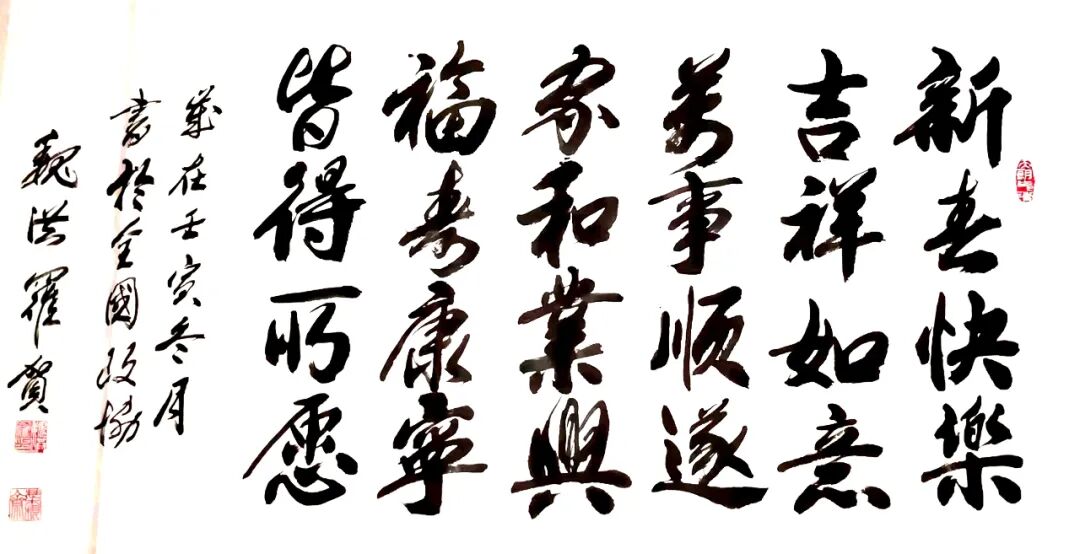 新春快樂
吉祥如意
萬事順遂
家和業興
福壽康寧
皆得所愿
歲在壬寅冬月
書於全國政協
魏洪羅賀